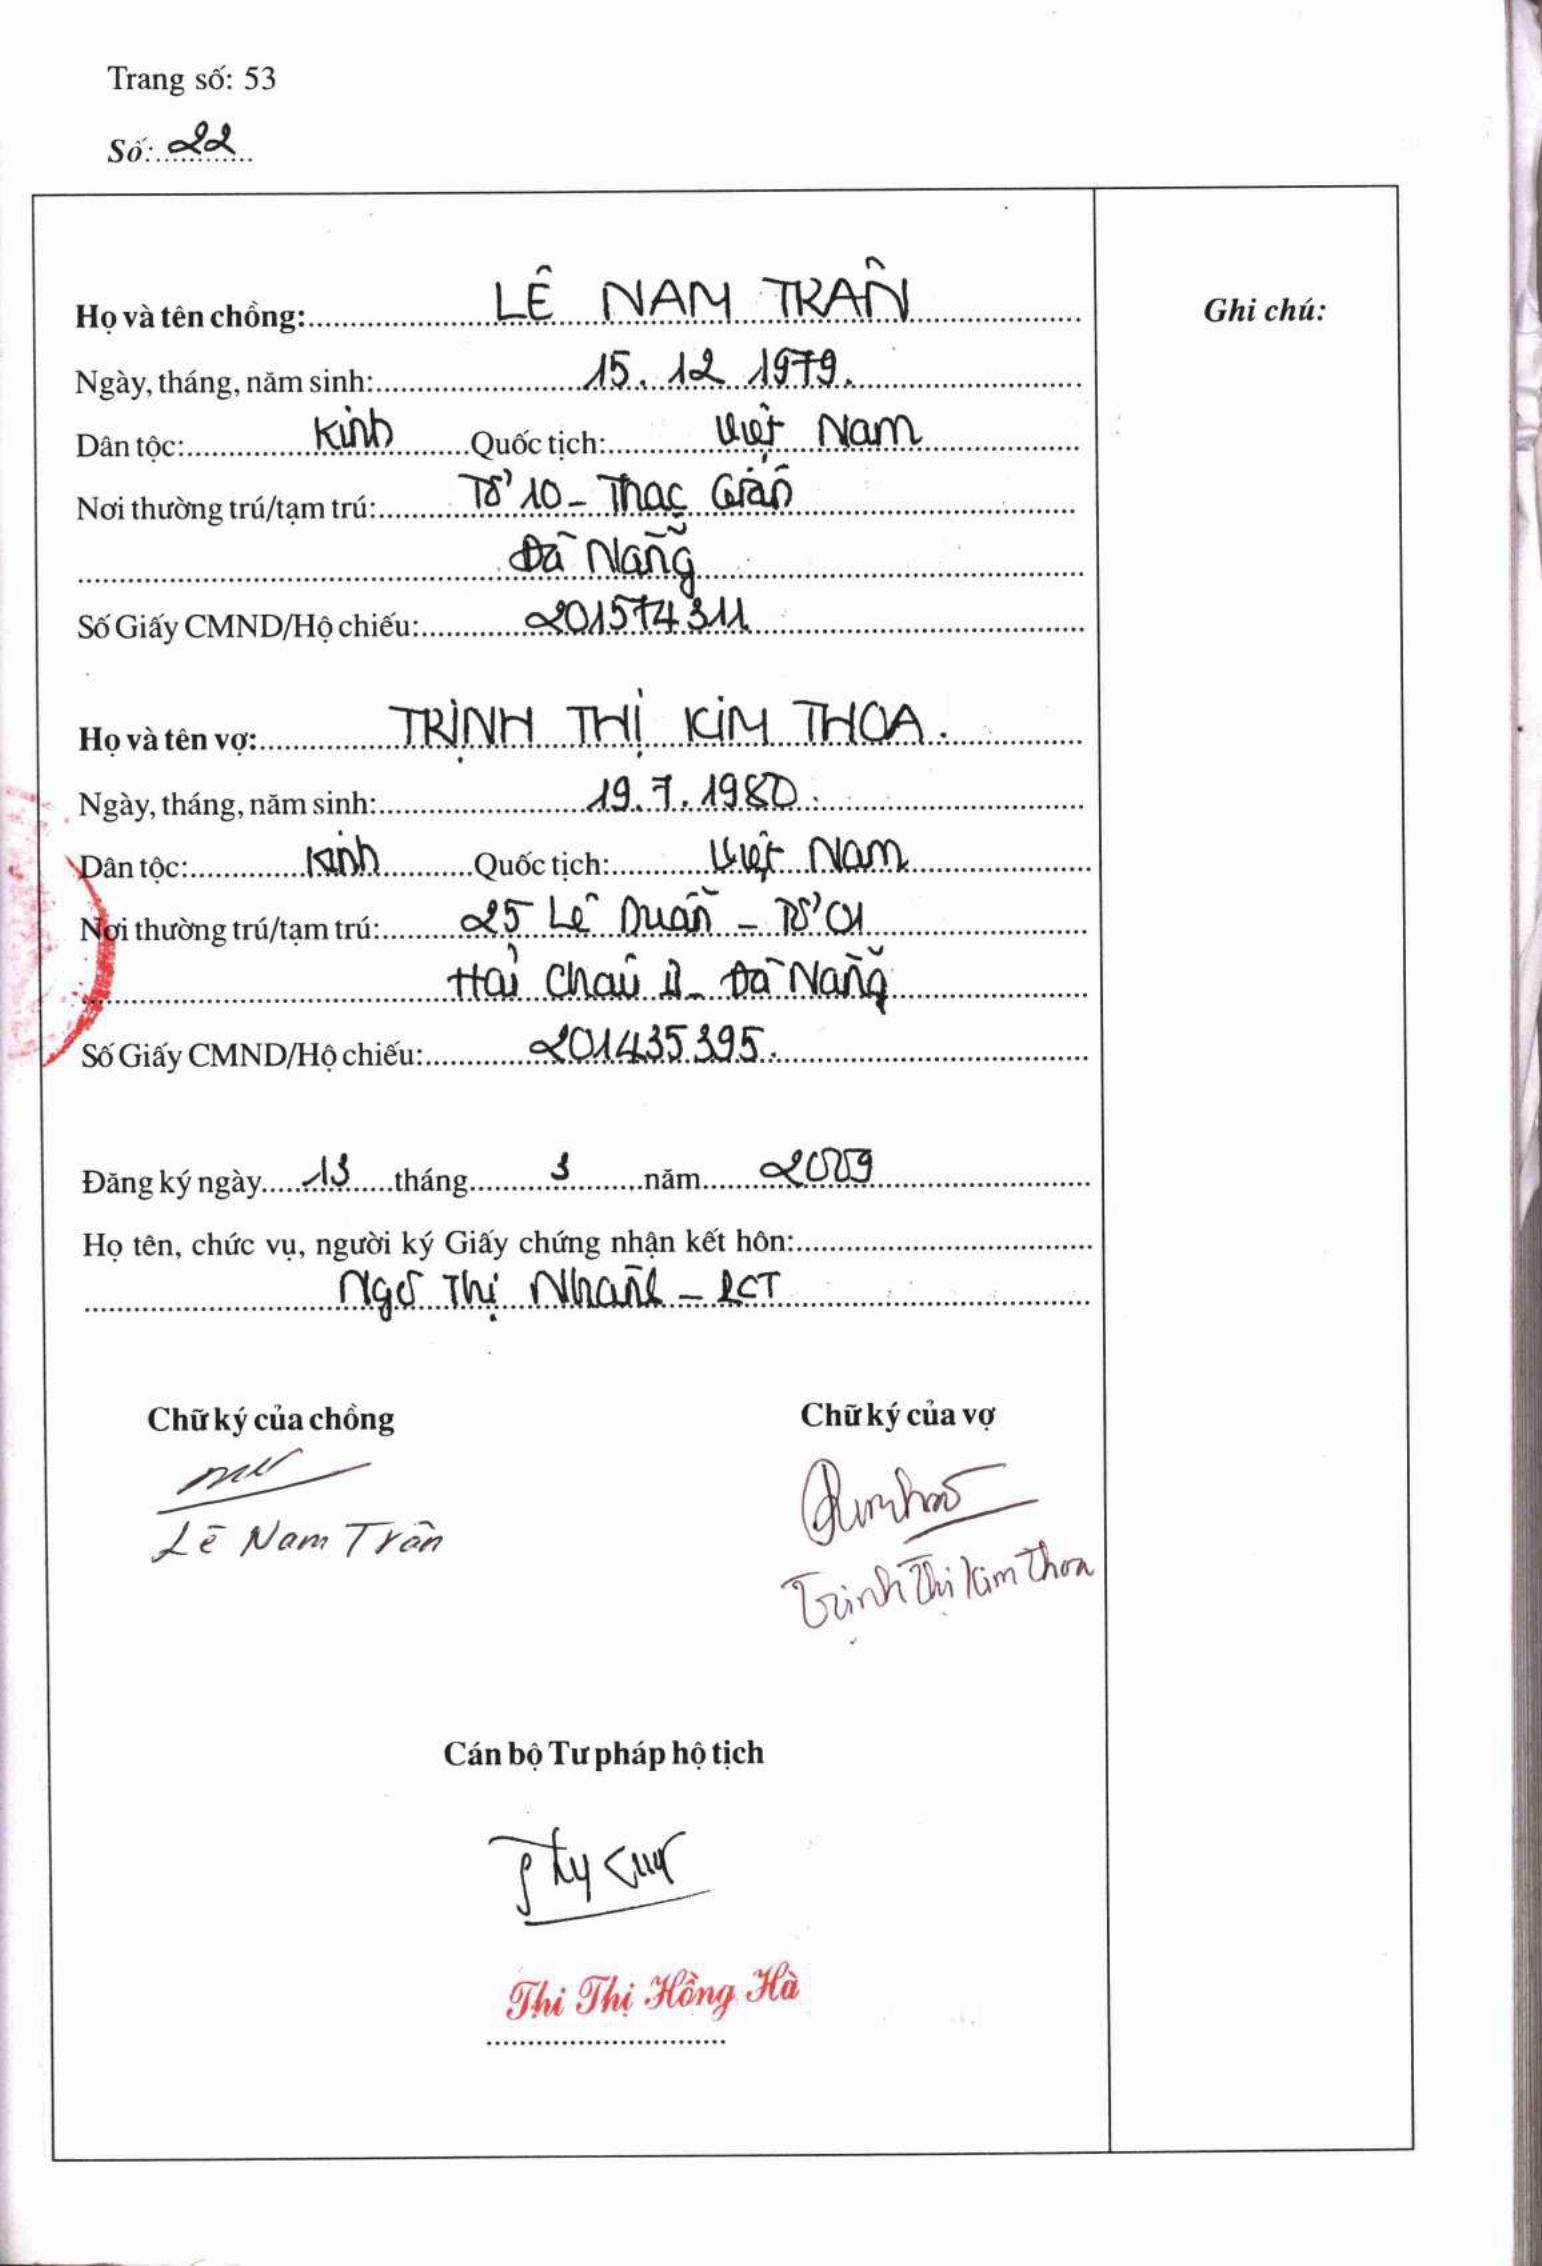 Trang số: 53
Số: 22
Họ và tên chồng: LÊ NAM TRÂN
Ghi chú:
Ngày, tháng, năm sinh: 15.12 1979.
Dân tộc: Kinh Quốc tịch: Việt Nam
Nơi thường trú/tạm trú: Tổ 10 - Thạc Gián
Đà Nẵng
Số Giấy CMND/Hộ chiếu: 201574311
Họ và tên vợ: TRỊNH THỊ KIM THOA.
Ngày, tháng, năm sinh: 19.7.1980.
Dân tộc: Kinh Quốc tịch: Việt Nam
Nơi thường trú/tạm trú: 25 Lê Duẩn - Tổ 01
Hải Châu II - Đà Nẵng
Số Giấy CMND/Hộ chiếu: 201435395.
Đăng ký ngày 13 tháng 3 năm 2009
Họ tên, chức vụ, người ký Giấy chứng nhận kết hôn:
Ngô Thị Nhanh - PCT
Chữ ký của chồng Chữ ký của vợ
Lê Nam Trân
Trịnh Thị Kim Thoa
Cán bộ Tư pháp hộ tịch
Thi Thị Hồng Hà